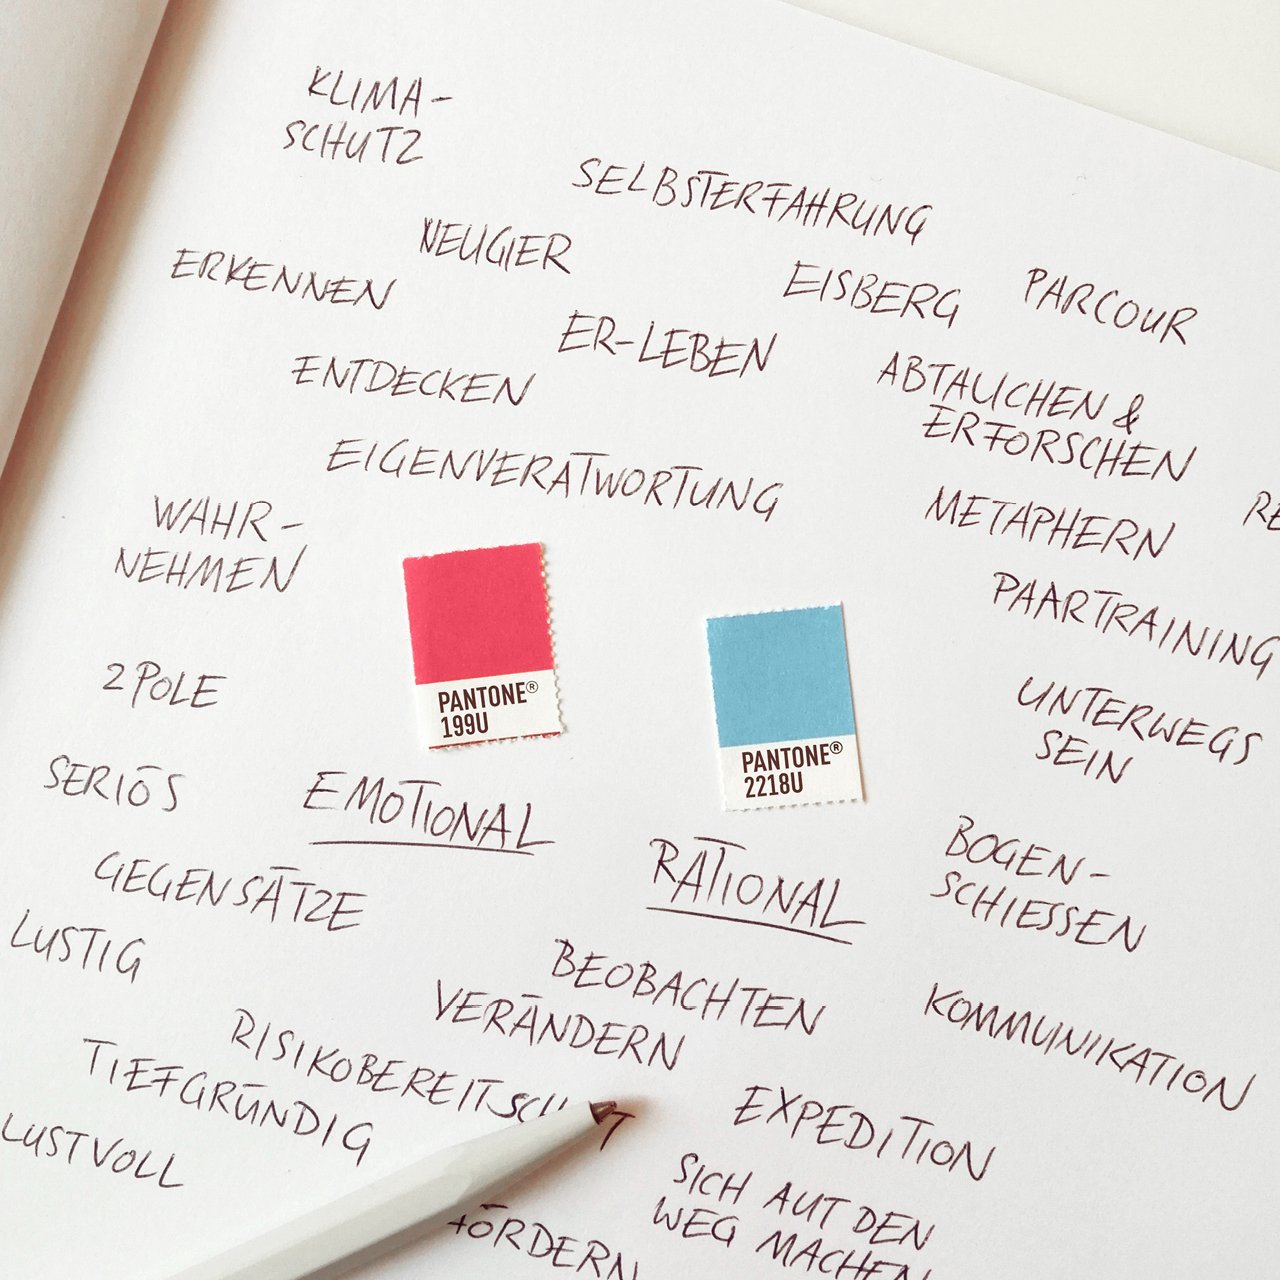 KLIMA-
SCHUTZ
SELBSTERFAHRUNG
NEUGIER
ERKENNEN
EISBERG
PARCOUR
ER-LEBEN
ENTDECKEN
ABTAUCHEN &
ERFORSCHEN
EIGENVERATWORTUNG
METAPHERN
WAHR-
NEHMEN
PAARTRAINING
PANTONE®
199U
PANTONE®
2218U
2 POLE
UNTERWEGS
SEIN
SERIÖS
EMOTIONAL
RATIONAL
BOGEN-
SCHIESSEN
GEGENSÄTZE
LUSTIG
BEOBACHTEN
VERÄNDERN
KOMMUNIKATION
RISIKOBEREITSCH
TIEFGRÜNDIG
EXPEDITION
LUSTVOLL
SICH AUF DEN
WEG MACHEN